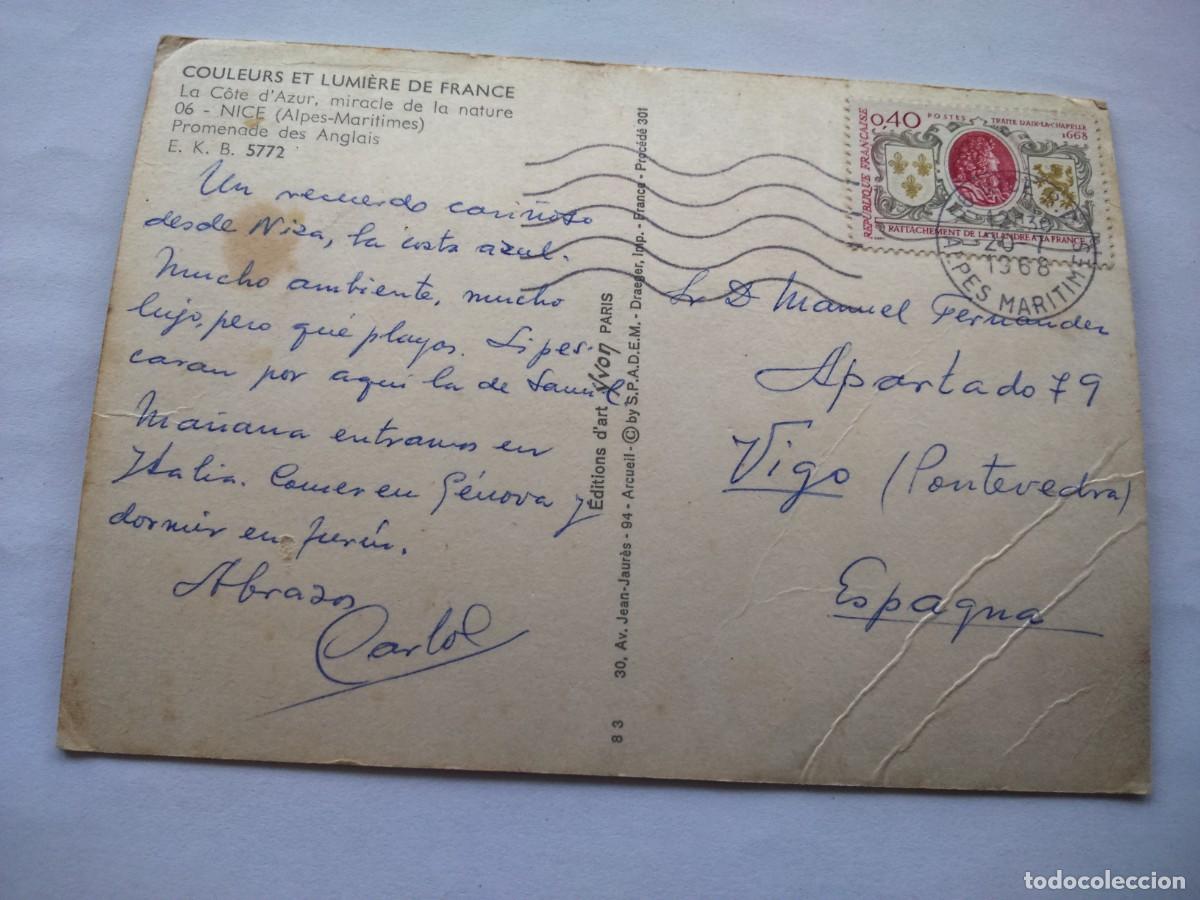 COULEURS ET LUMIÈRE DE FRANCE
La Côte d'Azur, miracle de la nature
06 - NICE (Alpes-Maritimes)
Promenade des Anglais
E. K. B. 5772
Un recuerdo cariñoso
desde Niza, la costa azul.
Mucho ambiente, mucho
lujo, pero qué playas. Si pes-
caran por aquí la de Samil,
Mañana entramos en
Italia. Comer en Génova y
dormir en Turín.
Abrazos
Carlos
Éditions d'art YVON PARIS
30, Av. Jean-Jaurès - 94 - Arcueil - © by S.P.A.D.E.M. - Draeger, Imp. - France - Procédé 301
8 3
REPUBLIQUE FRANCAISE
0,40 POSTES TRAITE D'AIX-LA-CHAPELLE
1668
RATTACHEMENT DE LA FLANDRE A LA FRANCE
20-7
1968
ALPES MARITIMES
Sr D Manuel Fernandez
Apartado 79
Vigo (Pontevedra)
Espagna
todocoleccion